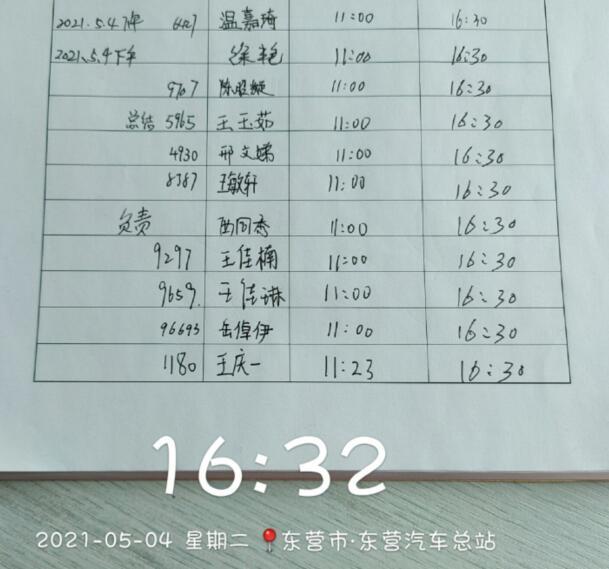 2021.5.4下午 6427 温嘉琦 11:00 16:30
2021.5.4下午 徐艳 11:00 16:30
9707 陈 11:00 16:30
总结 5965 王玉茹 11:00 16:30
4930 邢文娣 11:00 16:30
8387 王敏轩 11:00 16:30
负责 11:00 16:30
9297 王佳楠 11:00 16:30
9659. 王佳琳 11:00 16:30
96693 岳倬伊 11:00 16:30
1180 王庆一 11:23 16:30
16:32
2021-05-04 星期二 东营市·东营汽车总站